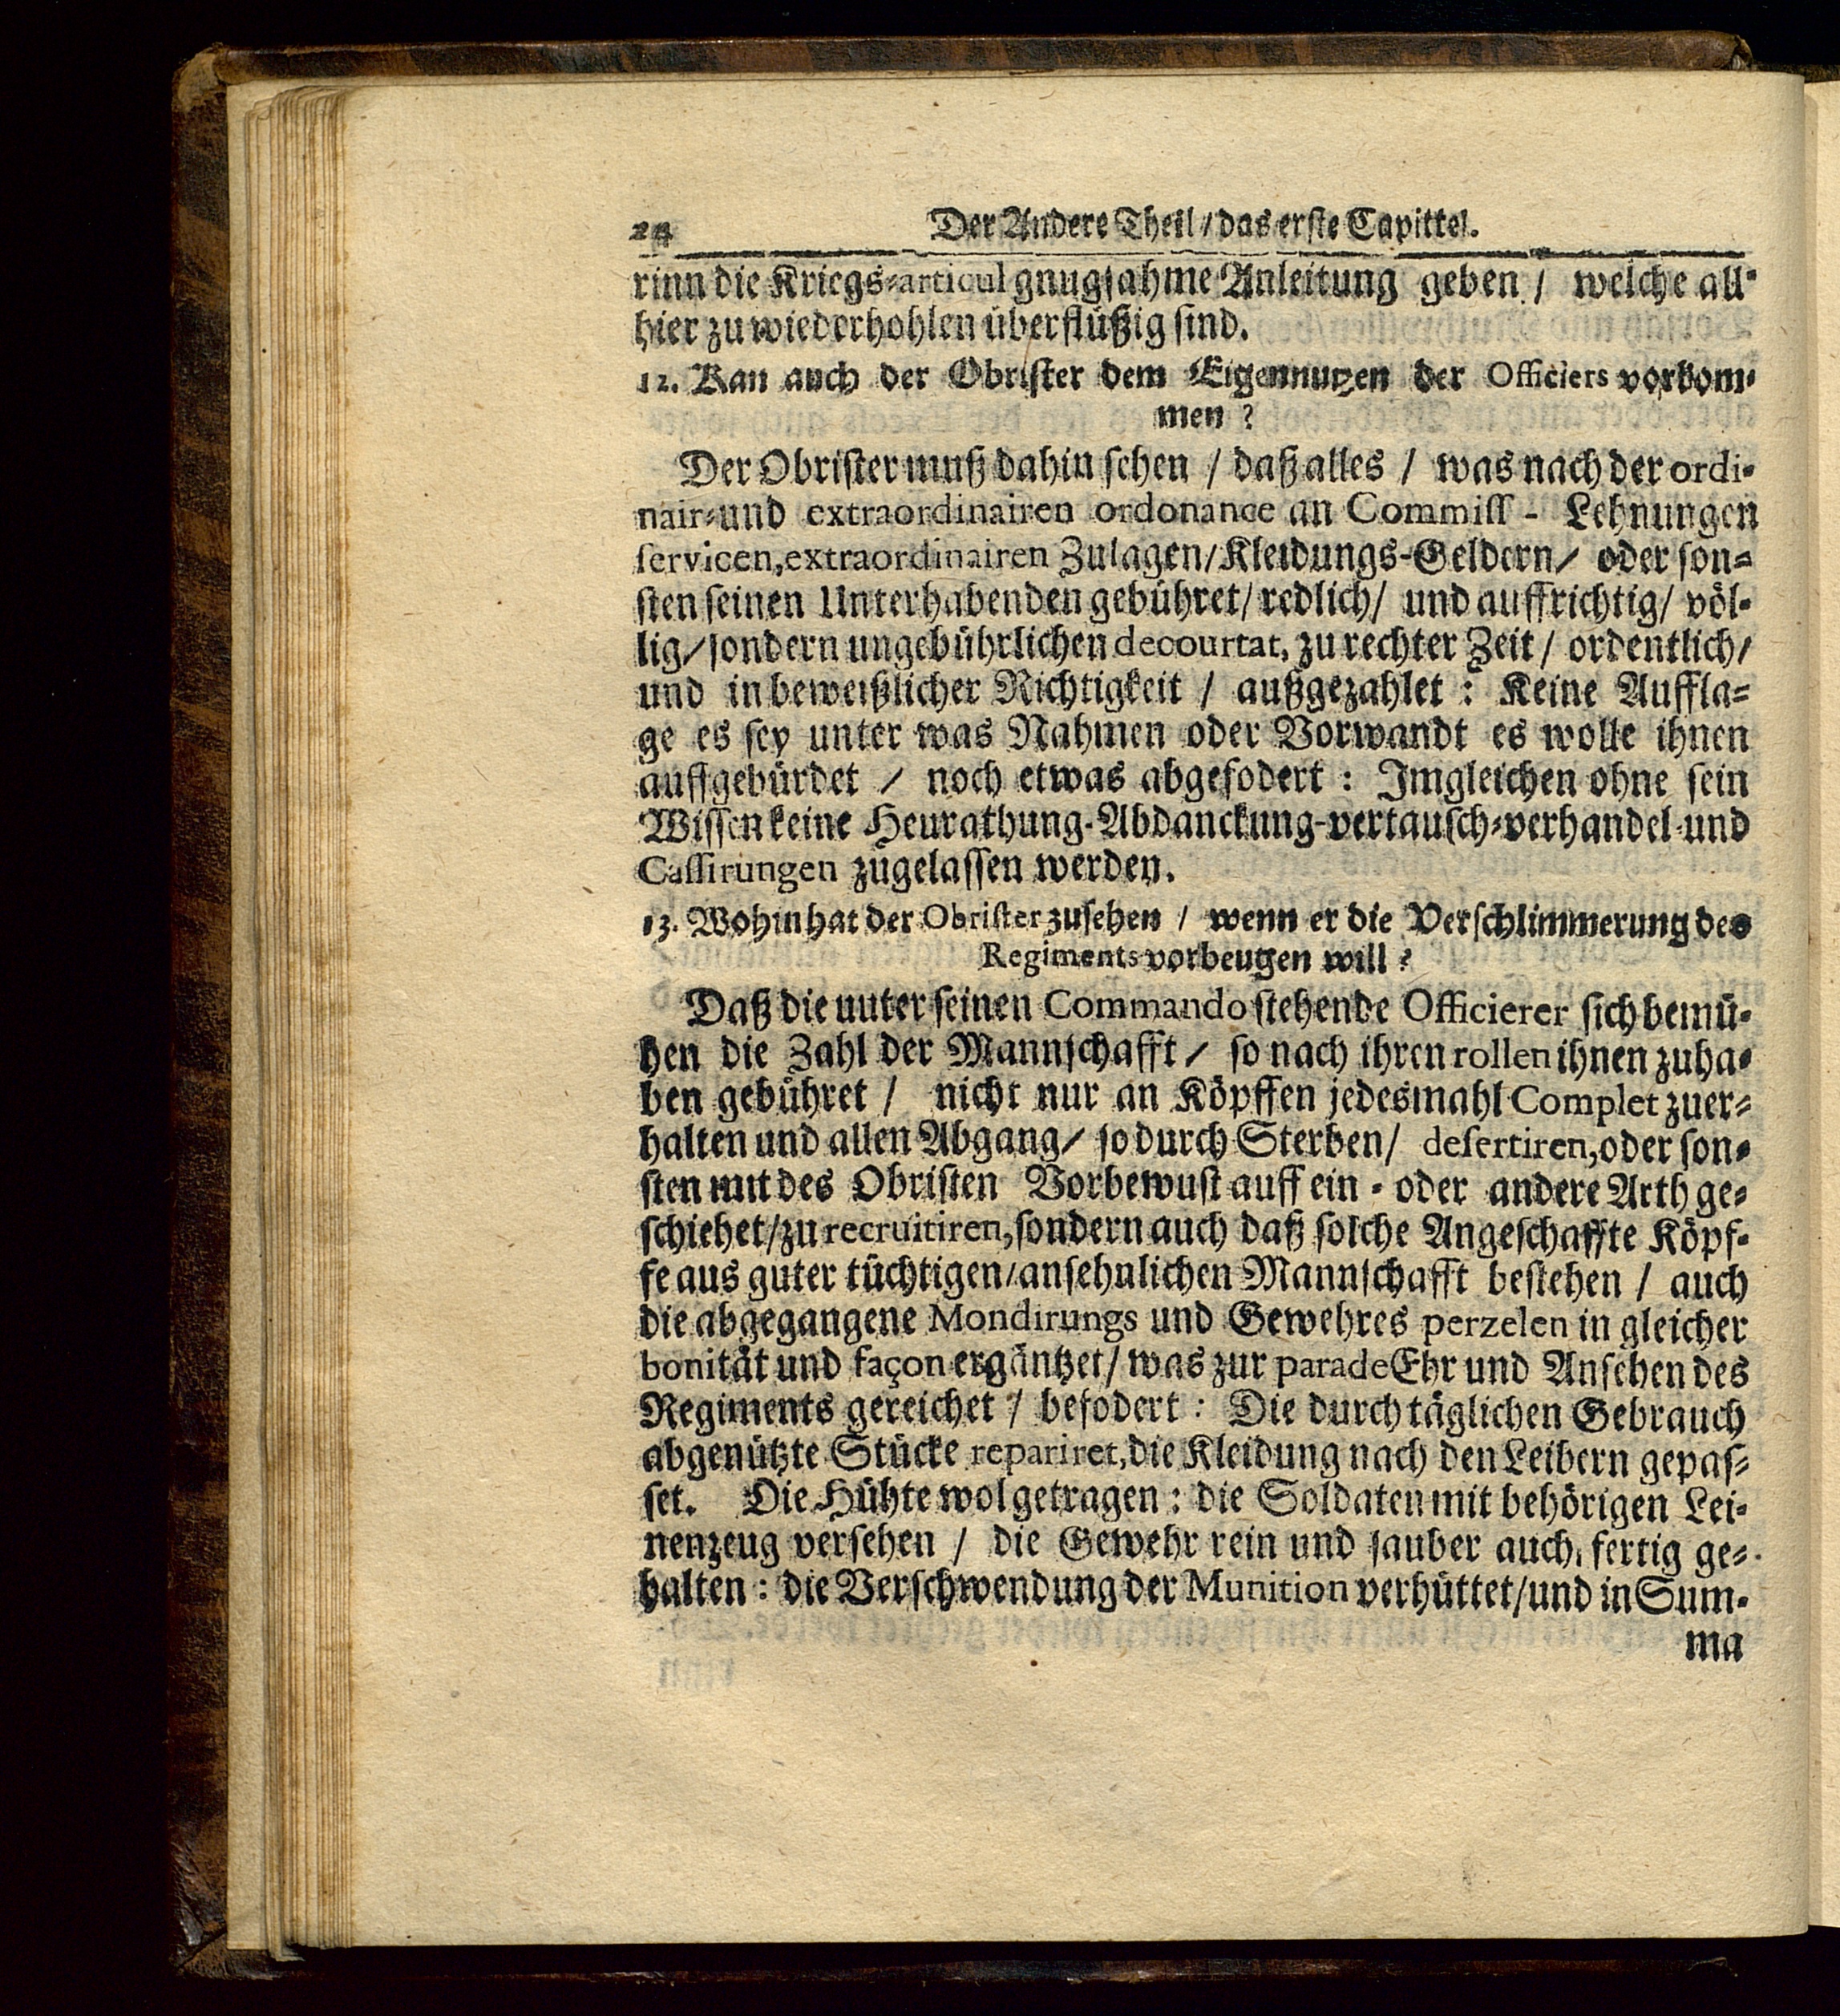 24 Der Andere Theil / das erste Capittel.
rinn die Kriegs-articul gnugsahme Anleitung geben / welche all-
hier zu wiederhohlen überflüßig sind.
12. Kan auch der Obrister dem Eigennutzen der Officiers vorkom-
men?
Der Obrister muß dahin sehen / daß alles / was nach der ordi-
nair-und extraordinairen ordonance an Commiss - Lehnungen
servicen, extraordinairen Zulagen / Kleidungs-Geldern / oder son-
sten seinen Unterhabenden gebühret / redlich / und auffrichtig / völ-
lig / sondern ungebührlichen decourtat, zu rechter Zeit / ordentlich /
und in beweißlicher Richtigkeit / außgezahlet : Keine Auffla-
ge es sey unter was Nahmen oder Vorwandt es wolle ihnen
auffgebürdet / noch etwas abgefodert : Imgleichen ohne sein
Wissen keine Heurathung-Abdanckung-vertausch-verhandel-und
Cassirungen zugelassen werden.
13. Wohin hat der Obrister zusehen / wenn er die Verschlimmerung des
Regiments vorbeugen will?
Daß die unter seinen Commando stehende Officierer sich bemü-
hen die Zahl der Mannschafft / so nach ihren rollen ihnen zuha-
ben gebühret / nicht nur an Köpffen jedesmahl Complet zuer-
halten und allen Abgang / so durch Sterben / desertiren, oder son-
sten mit des Obristen Vorbewust auff ein - oder andere Arth ge-
schiehet / zu recruitiren, sondern auch daß solche Angeschaffte Köpf-
fe aus guter tüchtigen / ansehnlichen Mannschafft bestehen / auch
die abgegangene Mondirungs und Gewehres perzelen in gleicher
bonität und façon ergäntzet / was zur parade Ehr und Ansehen des
Regiments gereichet / befodert : Die durch täglichen Gebrauch
abgenützte Stücke repariret, die Kleidung nach den Leibern gepas-
set. Die Hühte wol getragen : die Soldaten mit behörigen Lei-
nenzeug versehen / die Gewehr rein und sauber auch fertig ge-
halten : die Verschwendung der Munition verhüttet / und in Sum-
ma